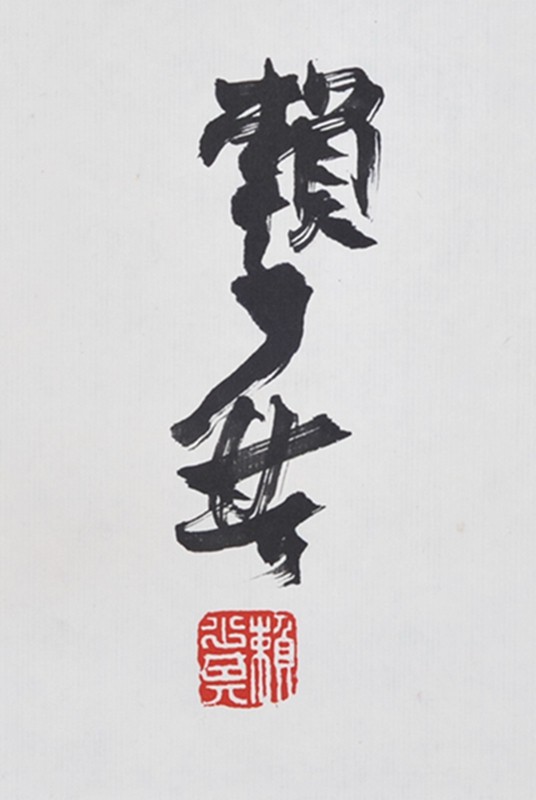 賴少其
賴少其